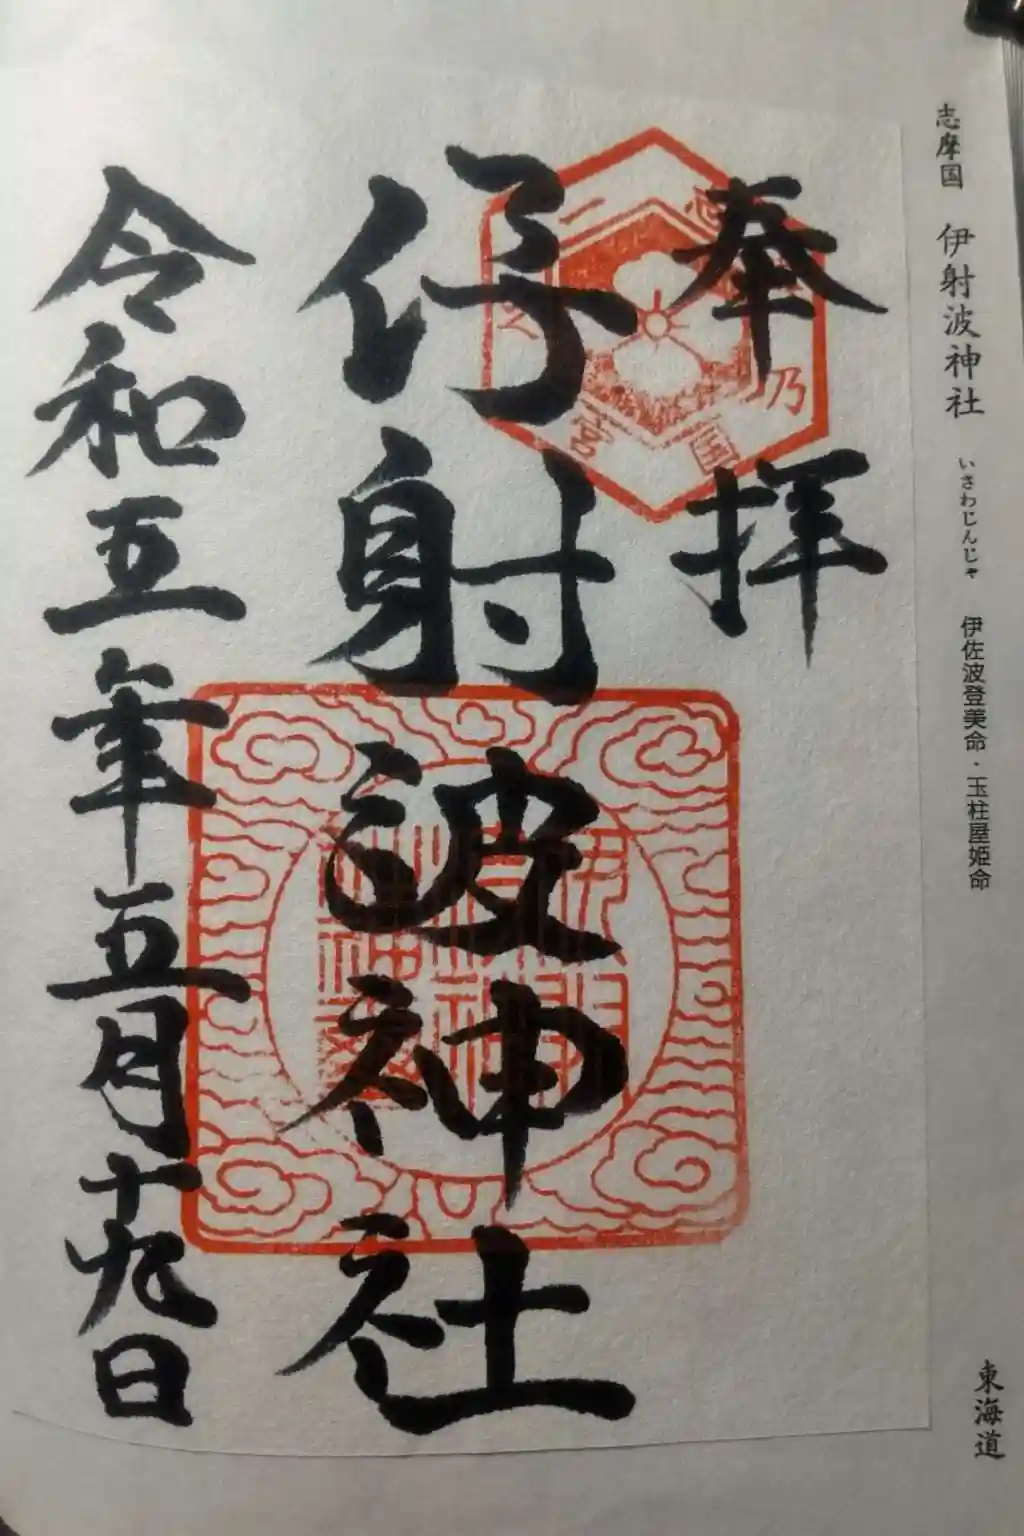 志摩国 伊射波神社 いさわじんじゃ 伊佐波登美命・玉柱屋姫命
東海道
奉拝
伊射波神社
令和五年五月十九日